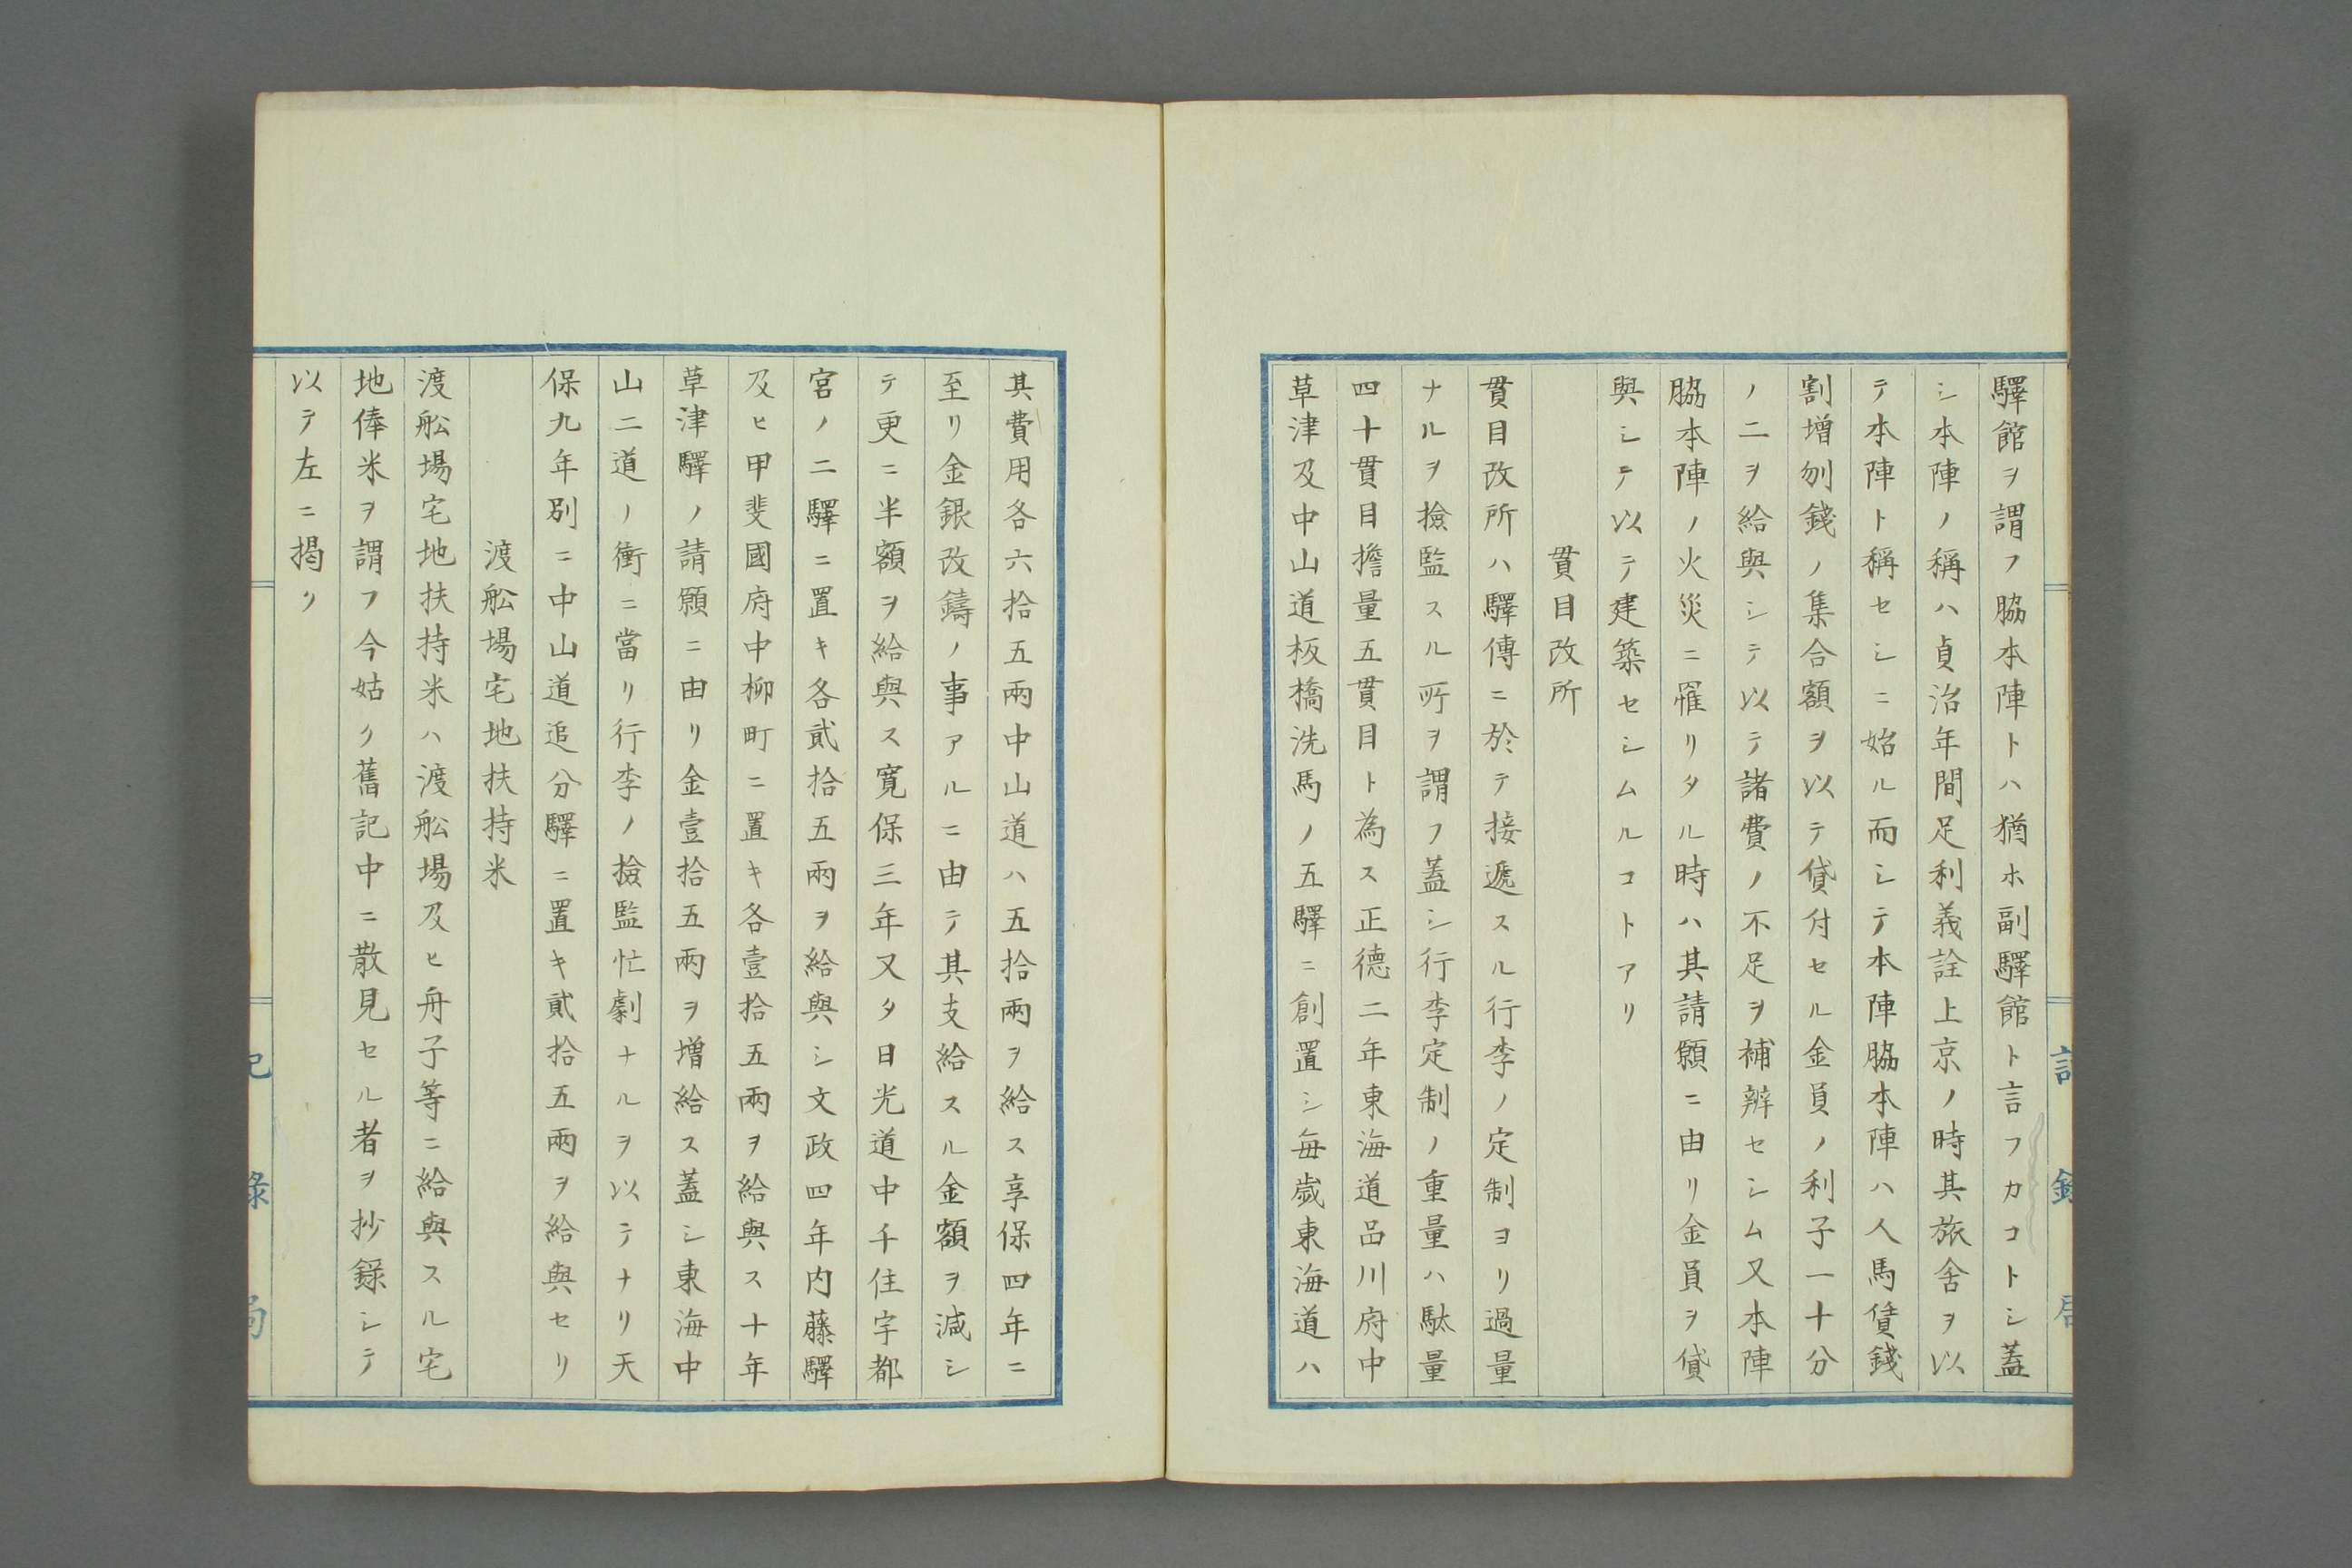 驛館ヲ謂フ脇本陣トハ猶ホ副驛館ト言フカコトシ蓋
シ本陣ノ稱ハ貞治年間足利義詮上京ノ時其旅舍ヲ以
テ本陣ト稱セシニ始ル而シテ本陣脇本陣ハ人馬賃錢
割增刎錢ノ集合額ヲ以テ貸付セル金員ノ利子一十分
ノ二ヲ給與シテ以テ諸費ノ不足ヲ補辨セシム又本陣
脇本陣ノ火災ニ罹リタル時ハ其請願ニ由リ金員ヲ貸
與シテ以テ建築セシムルコトアリ
貫目改所
貫目改所ハ驛傳ニ於テ接遞スル行李ノ定制ヨリ過量
ナルヲ撿監スル所ヲ謂フ蓋シ行李定制ノ重量ハ駄量
四十貫目擔量五貫目ト為ス正德二年東海道品川府中
草津及中山道板橋洗馬ノ五驛ニ創置シ每歲東海道ハ
其費用各六拾五兩中山道ハ五拾兩ヲ給ス享保四年ニ
至リ金銀改鑄ノ事アルニ由テ其支給スル金額ヲ減シ
テ更ニ半額ヲ給與ス寬保三年又タ日光道中千住宇都
宮ノ二驛ニ置キ各貳拾五兩ヲ給與シ文政四年内藤驛
及ヒ甲斐國府中柳町ニ置キ各壹拾五兩ヲ給與ス十年
草津驛ノ請願ニ由リ金壹拾五兩ヲ增給ス蓋シ東海中
山二道ノ衝ニ當リ行李ノ撿監忙劇ナルヲ以テナリ天
保九年別ニ中山道追分驛ニ置キ貳拾五兩ヲ給與セリ
渡舩場宅地扶持米
渡舩場宅地扶持米ハ渡舩場及ヒ舟子等ニ給與スル宅
地俸米ヲ謂フ今姑ク舊記中ニ散見セル者ヲ抄錄シテ
以テ左ニ揭ク
記錄局